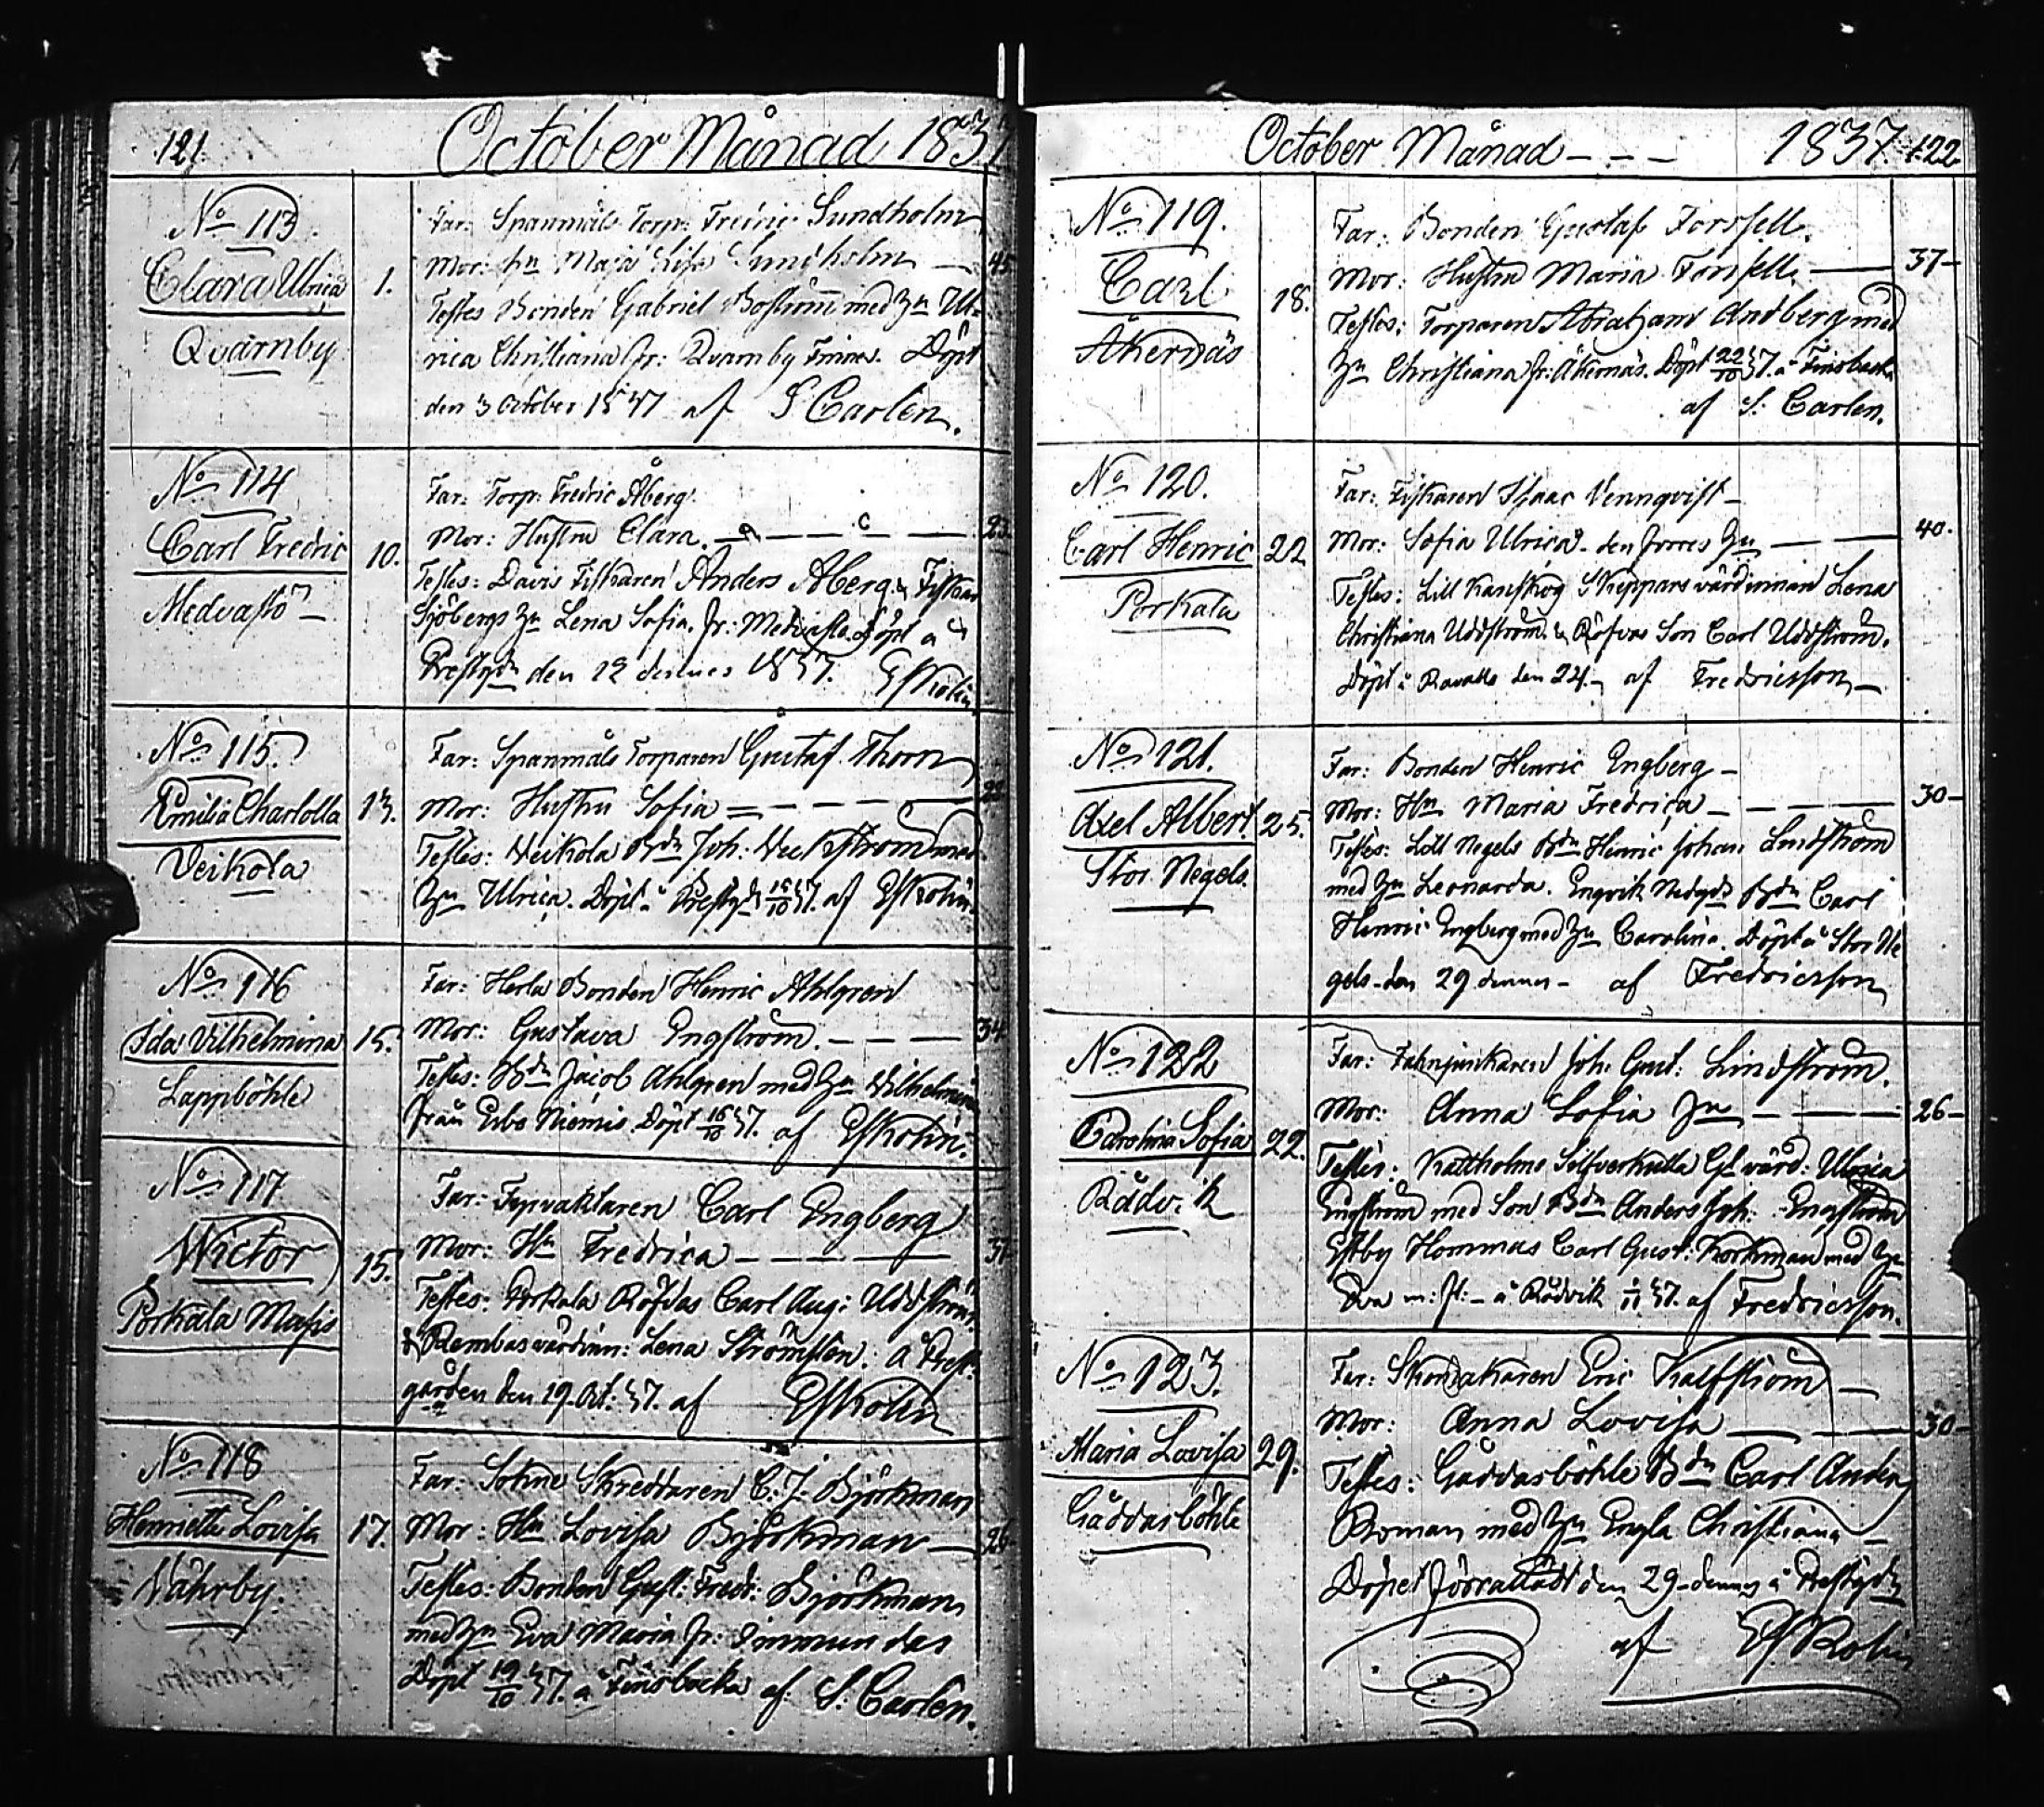 121 October Månad 1837
No 113.
Clara Ulrica
Qvarnby
1.
Far: Spanmåls Torp: Fredric Sundholm
Mor: Hu Maja Lisa Sundholm — 45
Testes Bonden Gabriel Boström med Hu Ul-
rica Christiana fr: Qvarnby Finnes. Döpt
den 3 October 1837 af S Carlen.
No 114
Carl Fredric
Medvastö –
10.
Far: Torp: Fredric Åberg.
Mor: Hustru Clara. — 23
Testes: Davis Fiskaren Anders Åberg & Fiskar
Sjöbergs Hu Lena Sofia, fr: Medvastö. Döpt å
Prestgdn den 12 dennes 1837. Eskolin.
No 115.
Emilia Charlotta
Veikola
13.
Far: Spanmåls Torparen Gustaf Thorn
Mor: Hustru Sofia = – – – –
Testes: Veikola Bdn Joh: Veckström med
Hu Ulrica. Döpt å Prestgd 15/10 37. af Eskolin.
No 116
Ida Vilhelmina
Lappböhle
15.
Far: Herla Bonden Henric Ahlgren
Mor: Gustava Engström. – – – 34
Testes: Bdn Jacob Ahlgren med Hu Vilhelmina
från Erbs Niemis. Döpt 16/10 37. af Eskolin.
No 117
Wictor
Porkala Masis
15.
Far: Fyrvaktaren Carl Engberg
Mor: Hu Fredrica – – – — 37
Testes: Porkala Röfvas Carl Aug: Uddström
& Rembas värdinn: Lena Strömsten: å Prest-
gården den 19. Oct: 37. af Eskolin
No 118
Henrietta Lovisa
Nährby.
17.
Far: Sockne Skreddaren C. J. Björkman
Mor: Hu Lovisa Björkman — 26
Testes: Bonden Gust: Fredr: Björkman
med Hu Eva Maria fr:
Döpt 19/10 37. å Finsbacka af S: Carlen.
October Månad – – – 1837. 122
No 119.
Carl
Åkernäs
18.
Far: Bonden Gustaf Forssell.
Mor: Hustru Maria Forssell. — 37–
Testes: Torparen Abraham Andberg med
Hu Christiana fr: Åkernäs. Döpt 22/10 37. å Finsbacka
af S: Carlen.
No 120.
Carl Henric
Porkala
22
Far: Fiskaren Isaac Vennqvist –
Mor: Sofia Ulrica – den förres Hu — — 40.
Testes: Lill Kanskog Skeppars värdinnan Lena
Christiana Uddström. & Röfvas Son Carl Uddström.
Döpt å den 22. – af Fredricsson –
No 121.
Axel Albert
Stor Negels
25.
Far: Bonden Henric Engberg –
Mor: Hu Maria Fredrica – — — — 30–
Testes: Lill Negels Bdn Henric Johan Lindström
med Hu Leonarda. Engvik Nedgds Bdn Carl
Henric Engberg med Hu Carolina. Döpt å Stor Ne
gels – den 29 dennes – af Fredricsson
No 122
Carolina Sofia
Rådvik
22.
Far: Fahnjunkaren Joh: Gust: Lindström.
Mor: Anna Sofia Hu — — — 26–
Testes: Kattholms Silfverkulla Gl värd: Ulrica
Engström med Son Bdn Anders Joh: Engström
Estby Hommas Carl Gust: Korkman med Hu
Eva m: fl: – å Rådvik 1/11 37. af Fredricsson.
No 123.
Maria Lovisa
Gäddarböhle
29.
Far: Skomakaren Eric Kalfström –
Mor: Anna Lovisa — — — 30–
Testes: Gäddarböhle Bdn Carl Anders
Boman med Hu Engla Christiana –
Döpet förrättadt den 29 dennes å Prestgdn
af Eskolin